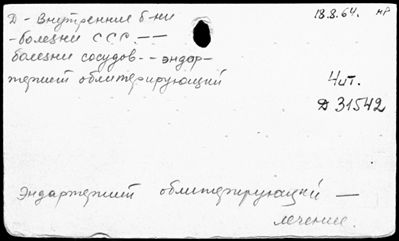 Д - Внутренние б-ни 18.8.64. нр
- болезни ССС. --
болезни сосудов -- эндар-
териит облитерирующий
4 ит.
Д 31542
Эндартериит облитерирующий —
лечение.